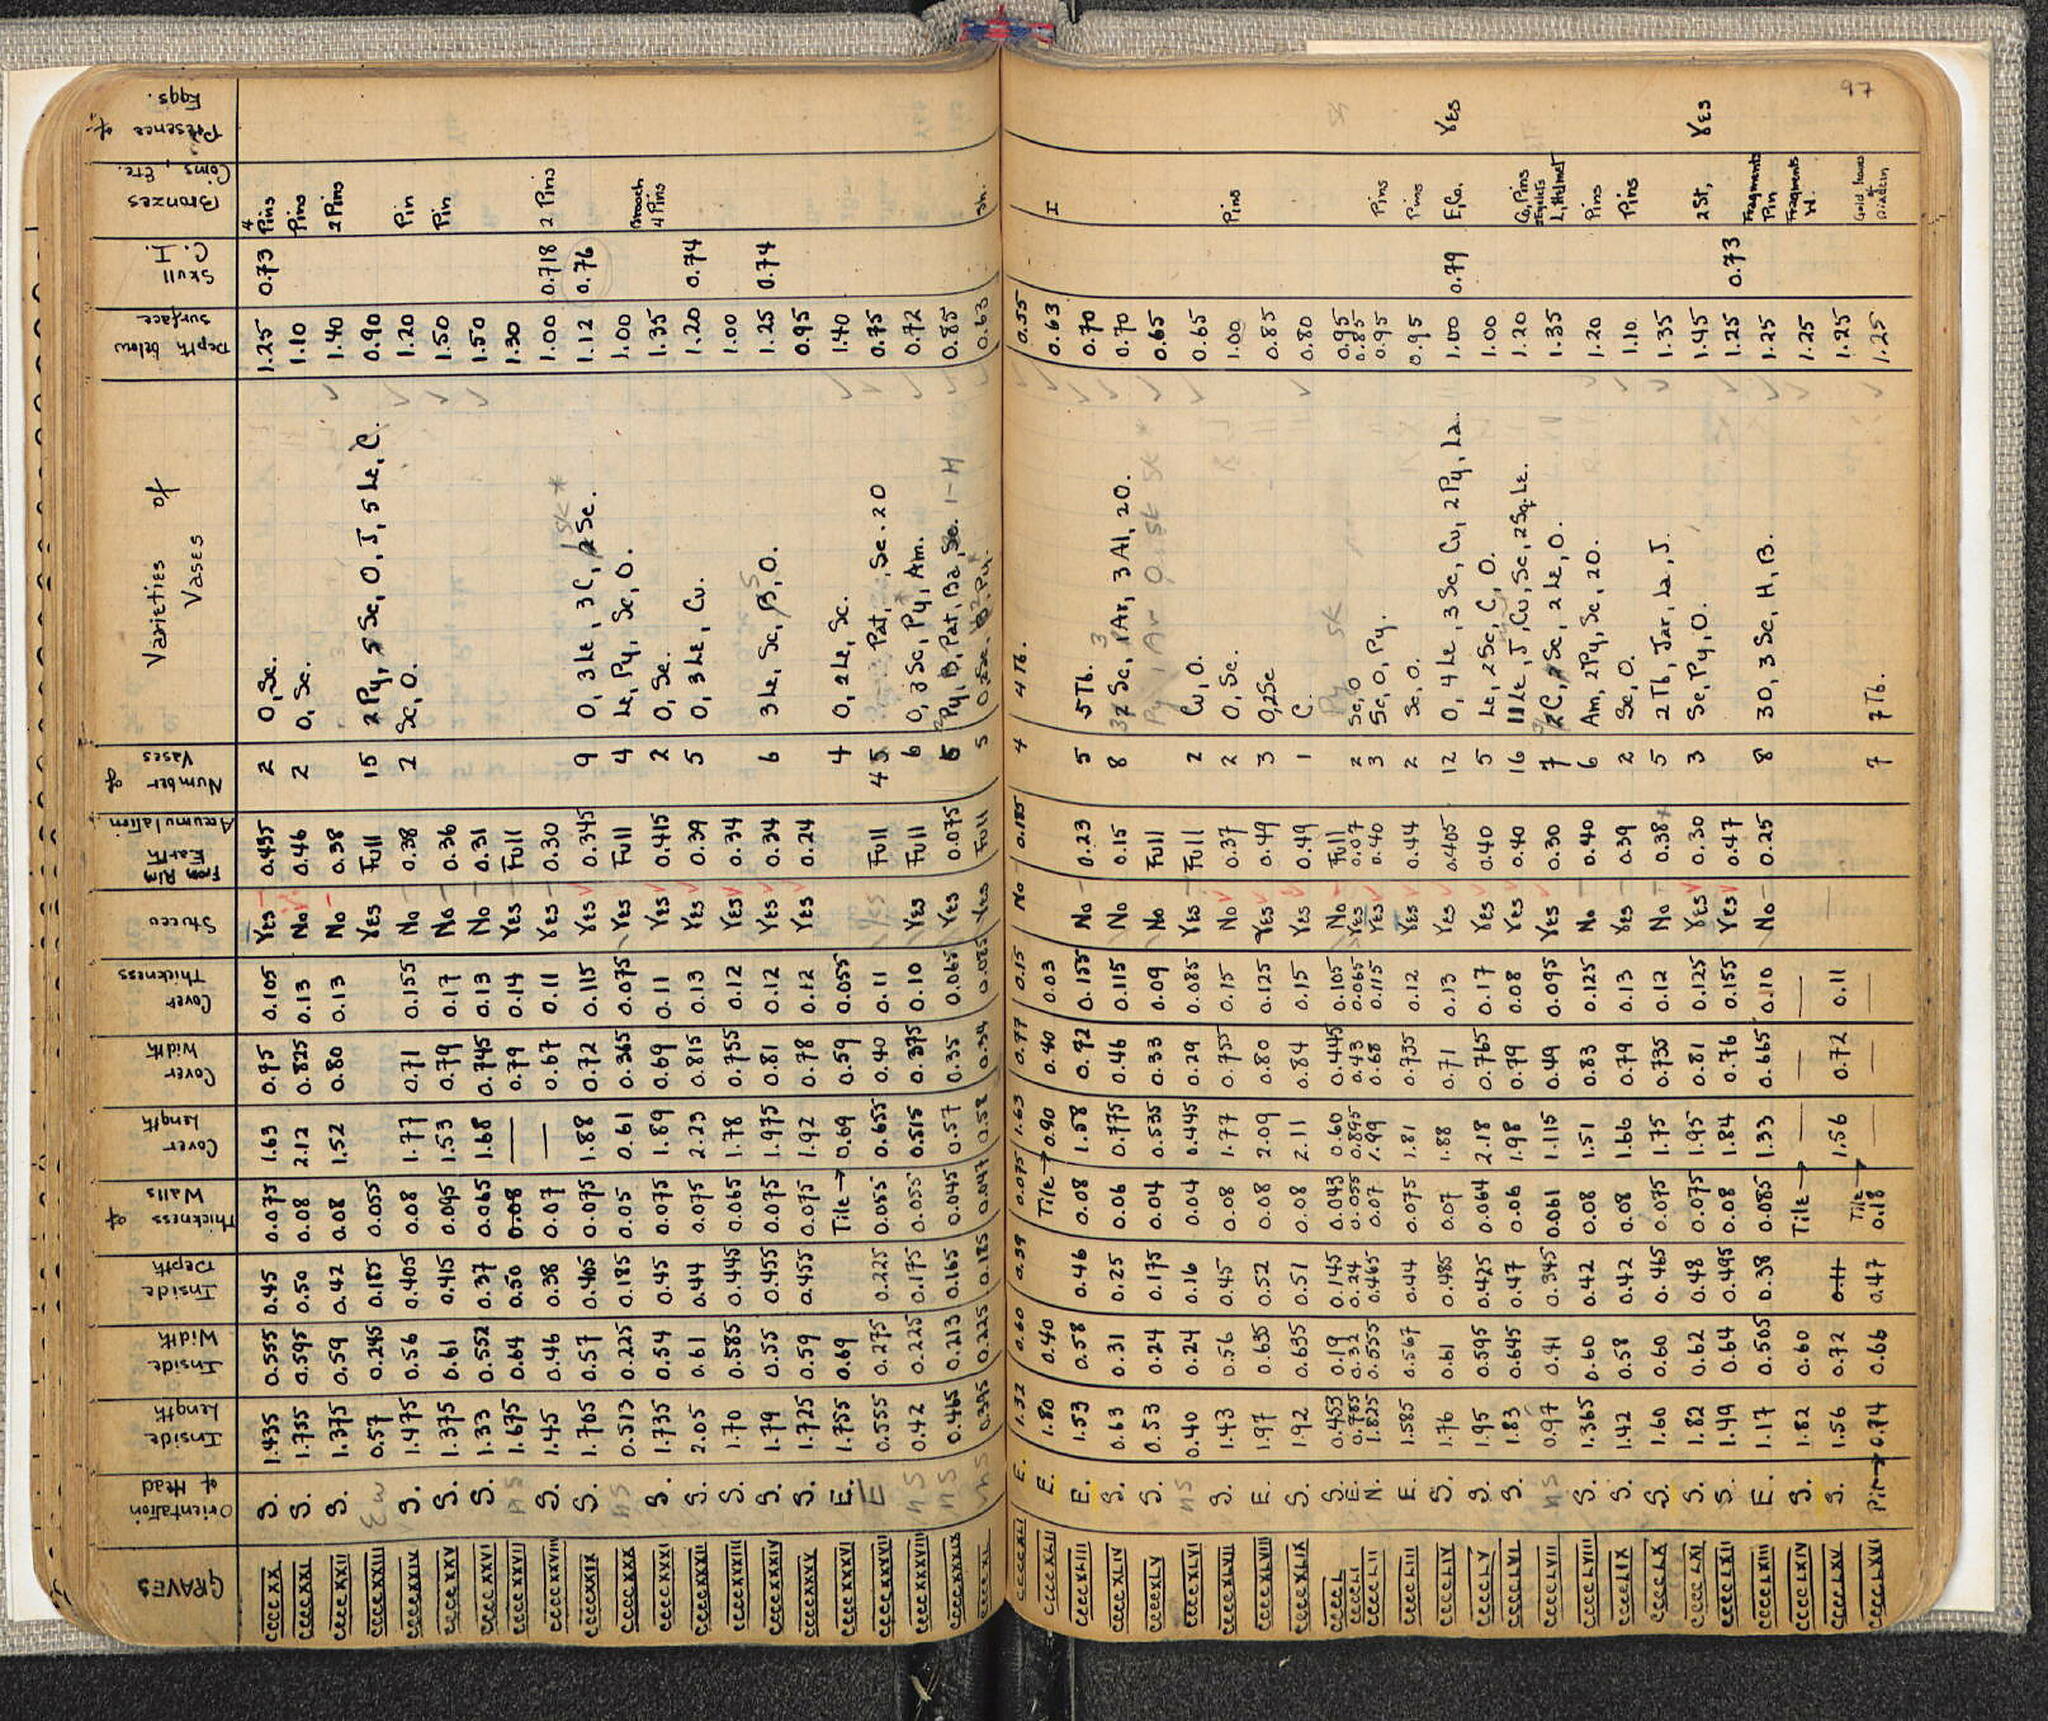 97
GRAVES | Orientation of Head | Inside Length | Inside Width | Inside Depth | Thickness of Walls | Cover Length | Cover Width | Cover Thickness | Stucco | Accumulation Earth From Rim | Number of Vases | Varieties of Vases | Depth below surface | Skull C. H. | Bronzes Coins, Etc. | Presence of Eggs.
CCCCXX S. 1.435 0.555 0.45 0.075 1.63 0.75 0.105 Yes 0.455 2 O, Sc. 1.25 0.73 4 Pins
CCCCXXI S. 1.755 0.595 0.50 0.08 2.12 0.825 0.13 No 0.46 2 O, Sc. 1.10 Pins
CCCCXXII S. 1.375 0.59 0.42 0.08 1.52 0.80 0.13 No 0.38 1.40 2 Pins
CCCCXXIII E W 0.57 0.245 0.185 0.055 Yes Full 15 2 Py, Sc, O, J, 5 Le, C. 0.90
CCCCXXIV S. 1.475 0.56 0.405 0.08 1.77 0.71 0.155 No 0.38 2 Sc, O. 1.20 Pin
CCCCXXV S. 1.375 0.61 0.415 0.095 1.53 0.79 0.17 No 0.36 1.50 Pin
CCCCXXVI S. 1.33 0.552 0.37 0.065 1.68 0.745 0.13 No 0.31 1.50
CCCCXXVII N S 1.675 0.64 0.50 0.08 — 0.79 0.14 Yes Full 1.30
CCCCXXVIII S. 1.45 0.46 0.38 0.07 — 0.67 0.11 Yes 0.30 1 Sk * 1.00 0.718 2 Pins
CCCCXXIX S. 1.705 0.57 0.465 0.075 1.88 0.72 0.115 Yes 0.345 9 O, 3 Le, 3 C, 2 Sc. 1.12 0.76
CCCCXXX N S 0.513 0.225 0.185 0.05 0.61 0.365 0.075 Yes Full 4 Le, Py, Sc, O. 1.00
CCCCXXXI S. 1.735 0.54 0.45 0.075 1.89 0.69 0.11 Yes 0.415 2 O, Sc. 1.35 Brooch 4 Pins
CCCCXXXII S. 2.05 0.61 0.44 0.075 2.23 0.815 0.13 Yes 0.39 5 O, 3 Le, Cu. 1.20 0.74
CCCCXXXIII S. 1.70 0.585 0.445 0.065 1.78 0.755 0.12 Yes 0.34 1.00
CCCCXXXIV S. 1.79 0.55 0.455 0.075 1.975 0.81 0.12 Yes 0.34 6 3 Le, Sc, B, O. 1.25 0.74
CCCCXXXV S. 1.725 0.59 0.455 0.075 1.92 0.78 0.12 Yes 0.24 0.95
CCCCXXXVI E. 1.755 0.69 Tile → 0.69 0.59 0.055 4 O, 2 Le, Sc. 1.40
CCCCXXXVII E 0.555 0.275 0.225 0.055 0.655 0.40 0.11 Yes Full 4 5 Pat, Sc. 2 O 0.75
CCCCXXXVIII N S 0.42 0.225 0.175 0.055 0.515 0.375 0.10 Yes Full 6 O, 3 Sc, Py, Am. 0.72
CCCCXXXIX N S 0.465 0.213 0.165 0.045 0.57 0.35 0.065 Yes 0.075 Py, B, Pat, Ba, Sc. 1-H 0.85
CCCCXL N S 0.395 0.225 0.185 0.047 0.58 0.34 0.085 Yes Full 5 0.63 Sh.
CCCCXLI E. 1.32 0.60 0.39 0.075 1.63 0.77 0.15 No 0.185 4 4 Tb. 0.55
CCCCXLII E. 1.80 0.40 Tile → 0.90 0.40 0.03 0.63 I
CCCCXLIII E. 1.53 0.58 0.46 0.08 1.58 0.72 0.155 No 0.23 5 5 Tb. 0.70
CCCCXLIV S. 0.63 0.31 0.25 0.06 0.775 0.46 0.115 No 0.15 8 Sc, Ar, 3 Al, 2 O. 0.70
CCCCXLV S. 0.53 0.24 0.175 0.04 0.535 0.33 0.09 No Full Py, Ar 0.65
CCCCXLVI N S 0.40 0.24 0.16 0.04 0.445 0.29 0.085 Yes Full 2 Cu, O. 0.65
CCCCXLVII S. 1.43 0.56 0.45 0.08 1.77 0.755 0.15 No 0.37 2 O, Sc. 1.00 Pins
CCCCXLVIII E. 1.97 0.635 0.52 0.08 2.09 0.80 0.125 Yes 0.49 3 O, 2 Sc 0.85
CCCCXLIX S. 1.92 0.635 0.51 0.08 2.11 0.84 0.15 Yes 0.49 1 C. 0.80
CCCCL S. 0.453 0.19 0.145 0.043 0.60 0.445 0.105 No Full Py 0.95
CCCCLI E. 0.785 0.32 0.24 0.055 0.895 0.43 0.065 Yes 0.07 2 Sc, O 0.85
CCCCLII N. 1.825 0.555 0.465 0.07 1.99 0.68 0.115 Yes 0.40 3 Sc, O, Py. 0.95 Pins
CCCCLIII E. 1.585 0.567 0.44 0.075 1.81 0.735 0.12 Yes 0.44 2 Sc, O. 0.95 Pins
CCCCLIV S. 1.76 0.61 0.485 0.07 1.88 0.71 0.13 Yes 0.405 12 O, 4 Le, 3 Sc, Cu, 2 Py, La. 1.00 0.79 E, Co. Yes
CCCCLV S. 1.95 0.595 0.425 0.064 2.18 0.765 0.17 Yes 0.40 5 Le, 2 Sc, C, O. 1.00
CCCCLVI S. 1.83 0.645 0.47 0.06 1.98 0.79 0.08 Yes 0.40 16 11 Le, J, Cu, Sc, 2 Sq. Le. 1.20 Co, Pins
CCCCLVII N S 0.97 0.41 0.345 0.061 1.115 0.49 0.095 Yes 0.30 7 C, Sc, 2 Le, O. 1.35 L, Helmet
CCCCLVIII S. 1.365 0.60 0.42 0.08 1.51 0.83 0.125 No 0.40 6 Am, 2 Py, Sc, 2 O. 1.20 Pins
CCCCLIX S. 1.42 0.58 0.42 0.08 1.66 0.79 0.13 Yes 0.39 2 Sc, O. 1.10 Pins
CCCCLX S. 1.60 0.60 0.465 0.075 1.75 0.735 0.12 No 0.38 5 2 Tb, Jar, La, J. 1.35
CCCCLXI S. 1.82 0.62 0.48 0.075 1.95 0.81 0.125 Yes 0.30 3 Sc, Py, O. 1.45 2 St, Yes
CCCCLXII S. 1.49 0.64 0.495 0.08 1.84 0.76 0.155 Yes 0.47 1.25 0.73
CCCCLXIII E. 1.17 0.505 0.38 0.085 1.33 0.665 0.110 No 0.25 8 3 O, 3 Sc, H, B. 1.25 Fragments Pin
CCCCLXIV S. 1.82 0.60 Tile → — — — — 1.25 Fragments
CCCCLXV S. 1.56 0.72 0.11 1.56 0.72 0.11 1.25
CCCCLXVI Pit → 0.74 0.66 0.47 Tile → 0.18 — — — 7 7 Tb. 1.25 Gold leaves of Diadem